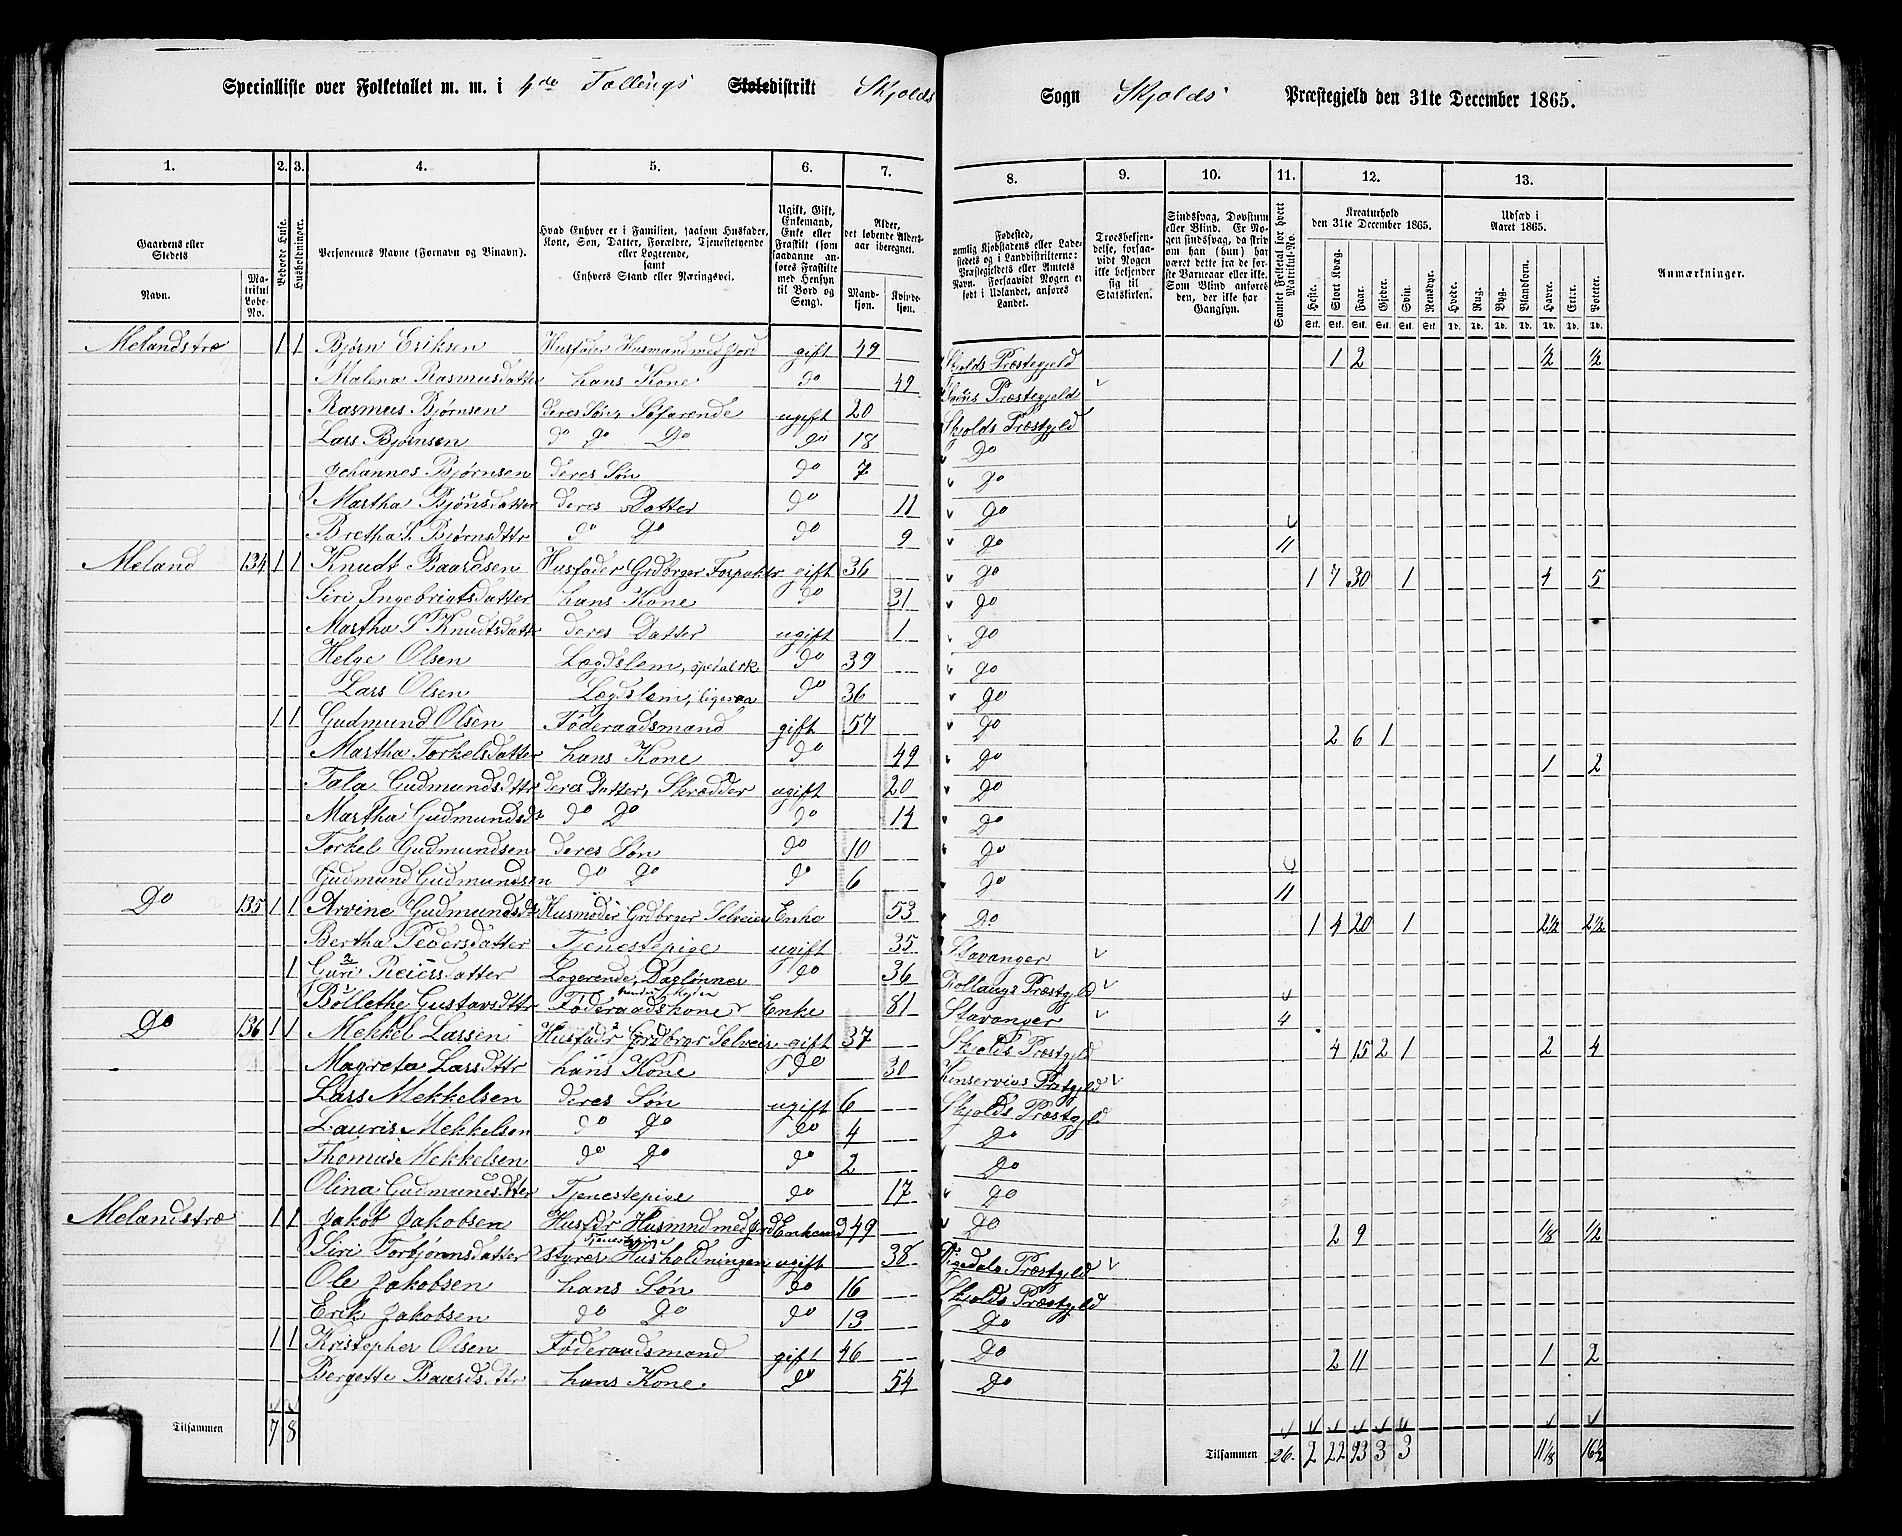 Specialliste over Folketallet m. m. i 4de Tællings Skoledistrikt Skjolds Sogn Skjolds Præstegjeld den 31te December 1865.
1. 2. 3. 4. 5. 6. 7. 8. 9. 10. 11. 12. 13.
Gaardens eller Stedets Navn. Matrikul Løbe-No. Beboede Huse. Husholdninger. Personernes Navne (Fornavn og Binavn). Hvad Enhver er i Familien, saasom Husfader, Kone, Søn, Datter, Forældre, Tjenestetyende eller Logerende, samt Enhvers Stand eller Næringsvei. Ugift, Gift, Enkemand, Enke eller Fraskilt (som saadanne anføres Fraskilte med Hensyn til Bord og Seng). Alder, det løbende Aldersaar iberegnet. Mandkjøn. Kvindekjøn.
Fødested, nemlig Kjøbstadens eller Ladestedets og i Landdistrikterne: Præstegjeldets eller Amtets Navn. Forsaavidt Nogen født i Udlandet, anføres Landet. Troesbekjendelse, forsaavidt Nogen ikke bekjender sig til Statskirken. Sindssvag, Døvstum eller Blind. Er Nogen sindssvag, da skrives om han (hun) har været dette fra de første Barneaar eller ikke. Som Blind anføres den, der ikke har Gangsyn. Samlet Folketal for hvert Matrikul-No. Kreaturhold den 31te December 1865. Udsæd i Aaret 1865. Anmærkninger.
Heste. Stort Kvæg. Faar. Gjeder. Svin. Rensdyr. Hvede. Rug. Byg. Blandkorn. Havre. Erter. Poteter.
Stk. Stk. Stk. Stk. Stk. Stk. Td. Td. Td. Td. Td. Td. Td.
Melandstræ 1 1 Bjørn Eriksen Husfader Husmand med Jord gift 49 Skjolds Præstegjeld 1 2 ½ ½
Malena Rasmusdatter hans Kone do 49 Præstegjeld
Rasmus Bjørnsen deres Søn, Søfarende ugift 20 Skjolds Præstgjld
Lars Bjørnsen do do Do do 18 Do
Johannes Bjørnsen deres Søn do 7 do
Martha Bjørnsdatter deres Datter do 11 do
Bretha S. Bjørnsdttr do Do do 9 do 11
Meland 134 1 1 Knudt Baardsen Husfader Grdbrger Forpakter gift 36 do 1 7 30 1 4 5
Siri Ingebrigtsdatter hans Kone do 31 do
Martha S Knudtsdattr deres Datter ugift 1 do
Helge Olsen Lægdslem, spedalsk do 39 do
Lars Olsen Lægdslem, ligesaa do 36 do
1 1 Gudmund Olsen Føderaadsmand gift 57 do 2 6 1
Martha Torkelsdatter hans Kone do 49 Do 1 2
Tala Gudmundsdttr deres Datter, Skrædder ugift 20 do
Martha Gudmundsdr do Do do 14 Do
Torkel Gudmundsen deres Søn do 10 Do
Gudmund Gudmundsen do Do do 6 Do 11
Do 135 1 1 Arvine Gudmundsdr Husmoder Grdbrger Selveier Enke 53 Do 1 4 20 1 2½ 2½
Bertha Pedersdatter Tjenestepige ugift 35 Stavanger
2 1 Guri Reiersdatter Logerende, Daglønnes do 36 Præstgjld
Bollethe Gustavsdttr Føderaadskone Enke 81 Stavanger 4
Do 136 1 1 Mekkel Larsen Husfadr Grdbrger Selveier gift 37 Skjolds Præstgjld 4 15 2 1 2 4
Magreta Larsdttr hans Kone do 30 Præstgjeld
Lars Mekkelsen deres Søn ugift 6 Skjolds Præstgjld
Lauris Mekkelsen do Do do 4 Do
Thomas Mekkelsen do Do do 2 Do
Olina Gudmundsdtter Tjenestepige do 17 Do
Melandstræ 1 1 Jakob Jakobsen Husfdr Husmnd med Jrd Enkemd 49 Do 2 9 ⅛ ½
Siri Torbjørnsdatter Tjenestepige styrer Husholdningen ugift 38 Præstgjld
Ole Jakobsen hans Søn do 16 Skjolds Præstgjld
Erik Jakobsen do Do do 13 Do
1 1 Kristopher Olsen Føderaadsmand gift 46 Do 2 11 1 2
Bergette Baardsdttr hans Kone do 54 Do
Tilsammen 7 8 Tilsammen 26. 2 22 93 3 3 11⅛ 16½